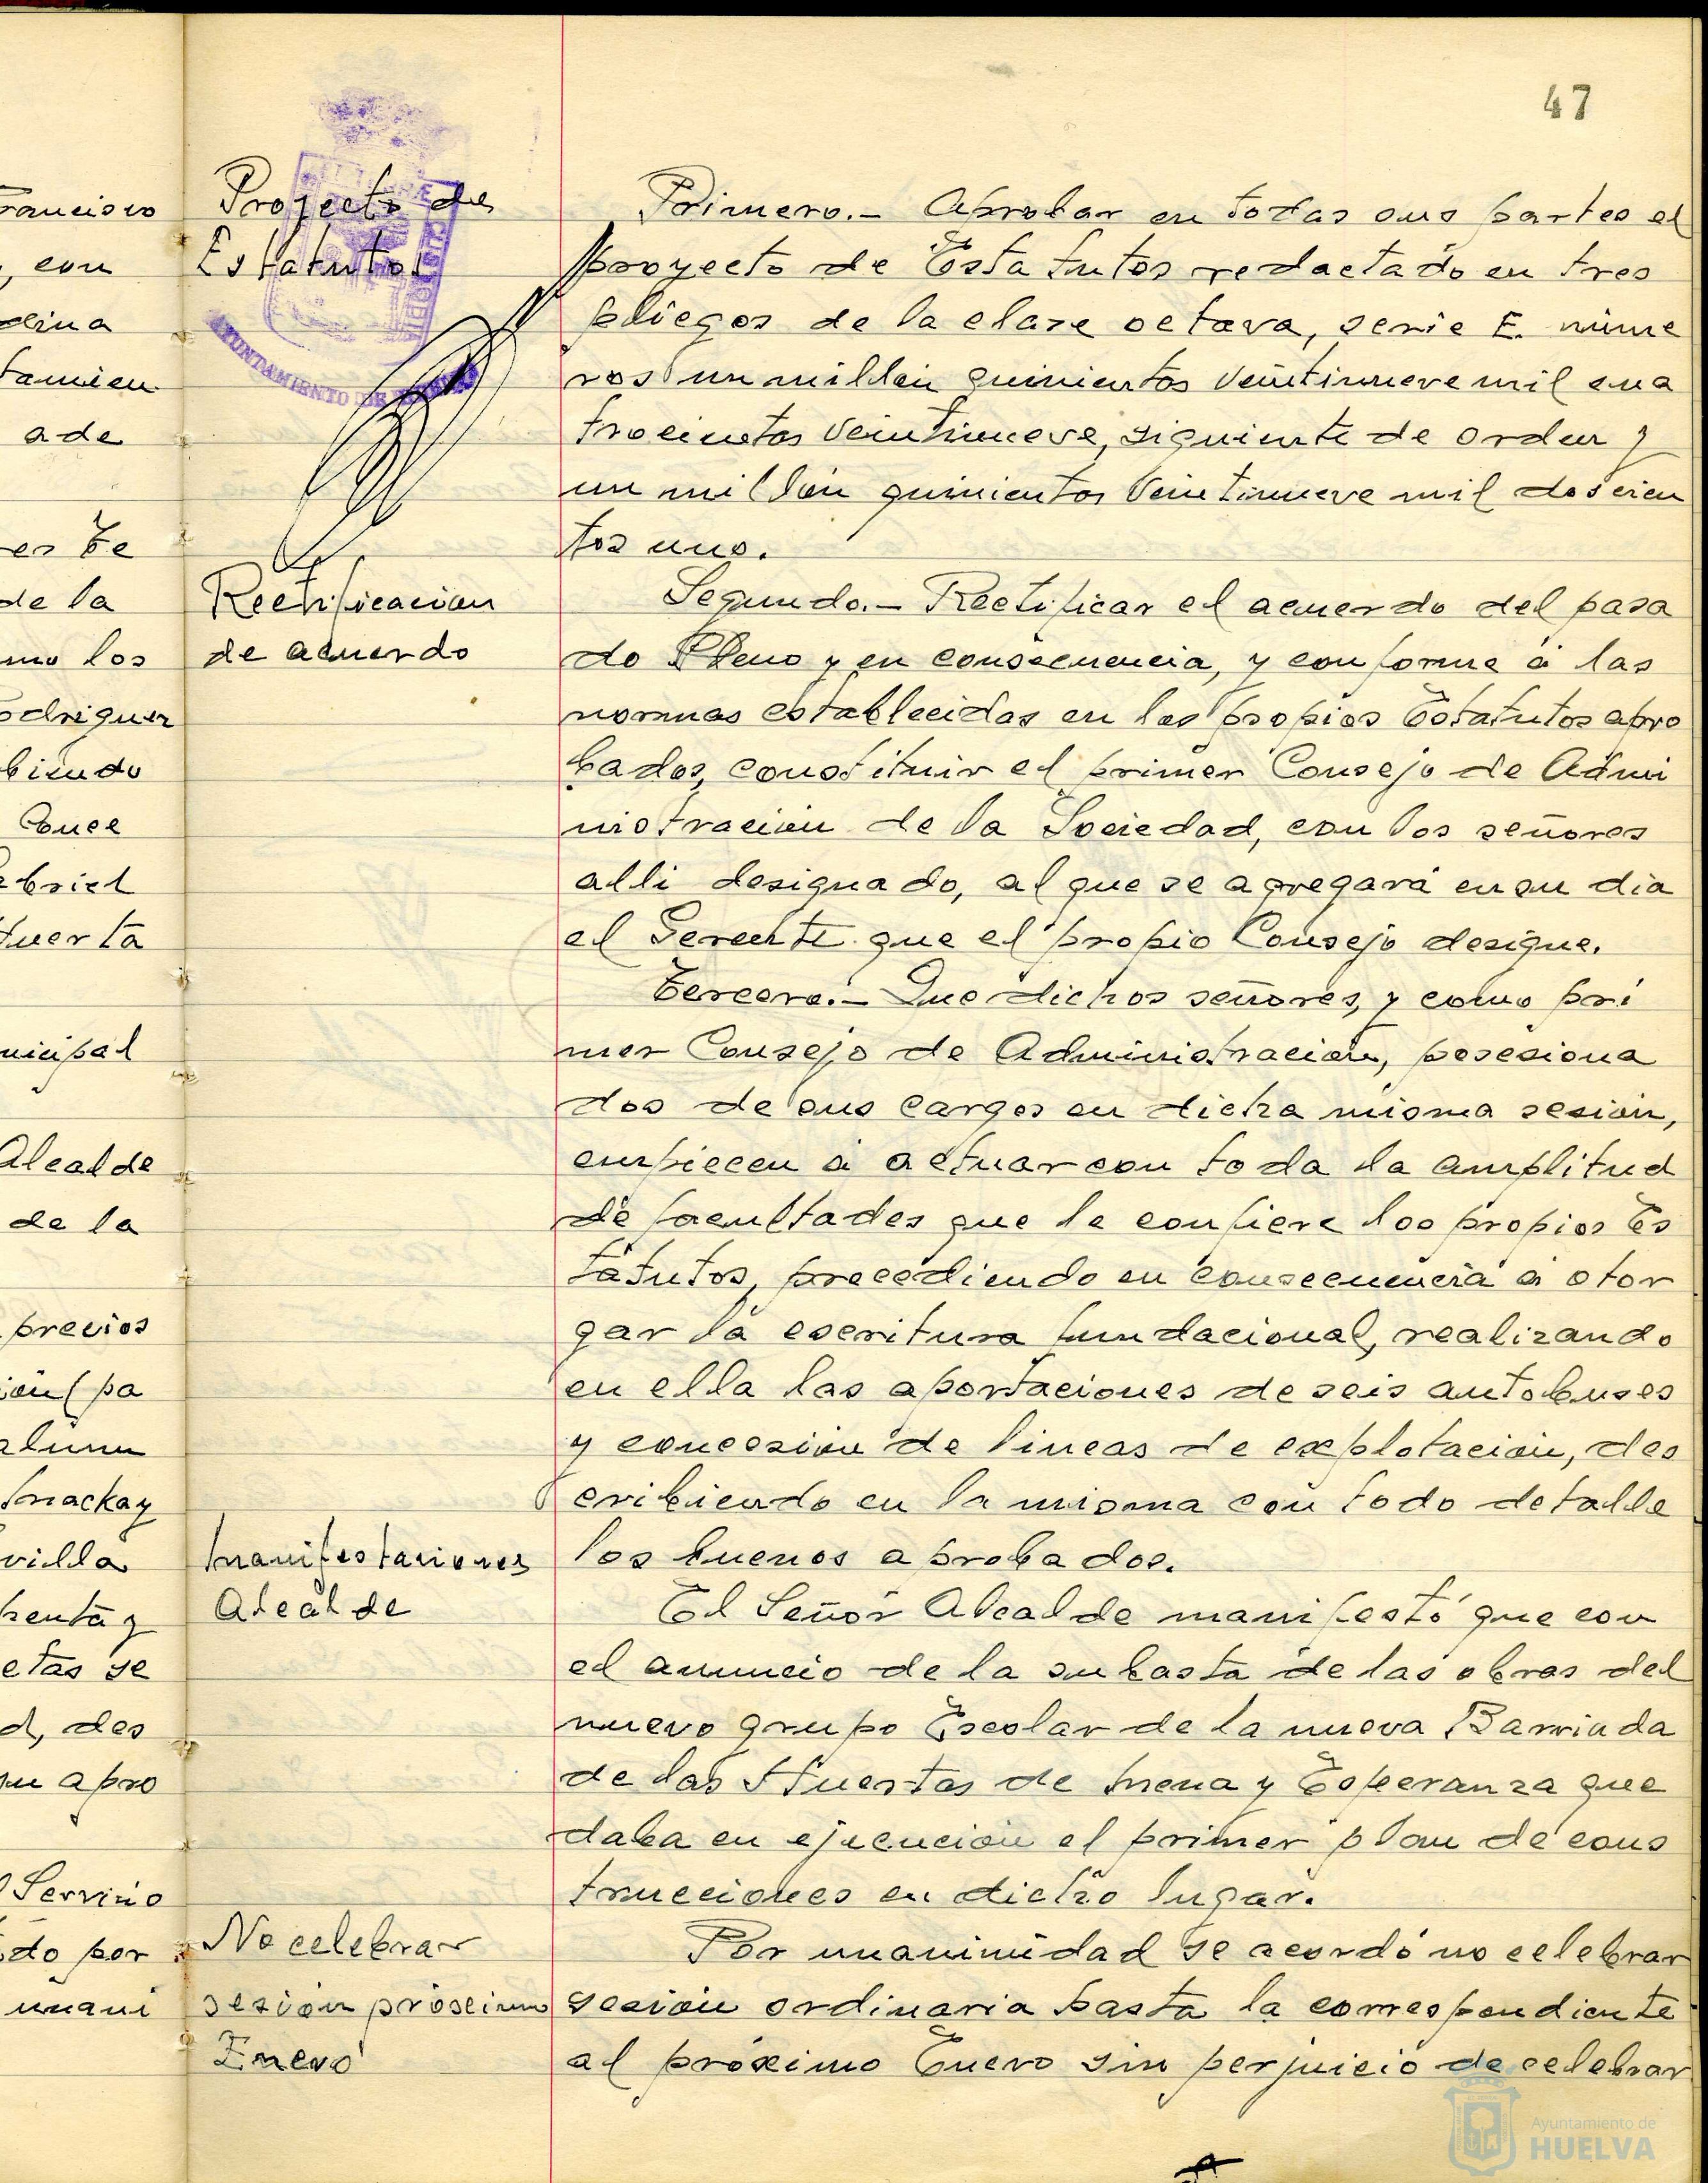 47
Francisco
, con
dina
tamien
a de
es Te
de la
mo los
odriguez
biendo
Conce
abriel
Huerta
nicipal
Alcalde
de la
previos
ion (pa
alum
Mackay
villa
henta y
etas se
d, des
su apro
Servicio
do por
unani
Proyecto de
Estatutos
AYUNTAMIENTO DE
Rectificacion
de acuerdo
Manifestaciones
Alcalde
No celebrar
sesión próximo
Enero
Primero.- Aprobar en todas sus partes el
proyecto de Estatutos redactado en tres
pliegos de la clase octava, serie E. núme
ros un millón quinientos veintinueve mil cua
trocientos veintinueve, siguiente de orden y
un millón quinientos veintinueve mil doscien
tos uno.
Segundo.- Rectificar el acuerdo del pasa
do Pleno y en consecuencia, y conforme á las
normas establecidas en los propios Estatutos apro
bados, constituir el primer Consejo de Admi
nistración de la Sociedad, con los señores
alli designado, al que se agregará en su dia
el Gerente que el propio Consejo designe.
Tercero.- Que dichos señores, y como pri
mer Consejo de Administración, posesiona
dos de sus cargos en dicha misma sesión,
empiecen á actuar con toda la amplitud
de facultades que le confiere los propios Es
tatutos, precediendo en consecuencia á otor
gar la escritura fundacional, realizando
en ella las aportaciones de seis autobuses
y concesión de lineas de explotación, des
cribiendo en la misma con todo detalle
los buenos aprobados.
El Señor Alcalde manifestó que con
el anuncio de la subasta de las obras del
nuevo grupo Escolar de la nueva Barriada
de las Huertas de Mena y Esperanza que
daba en ejecución el primer plan de cons
trucciones en dicho lugar.
Por unanimidad se acordó no celebrar
sesión ordinaria hasta la correspondiente
al próximo Enero sin perjuicio de celebrar
Ayuntamiento de
HUELVA